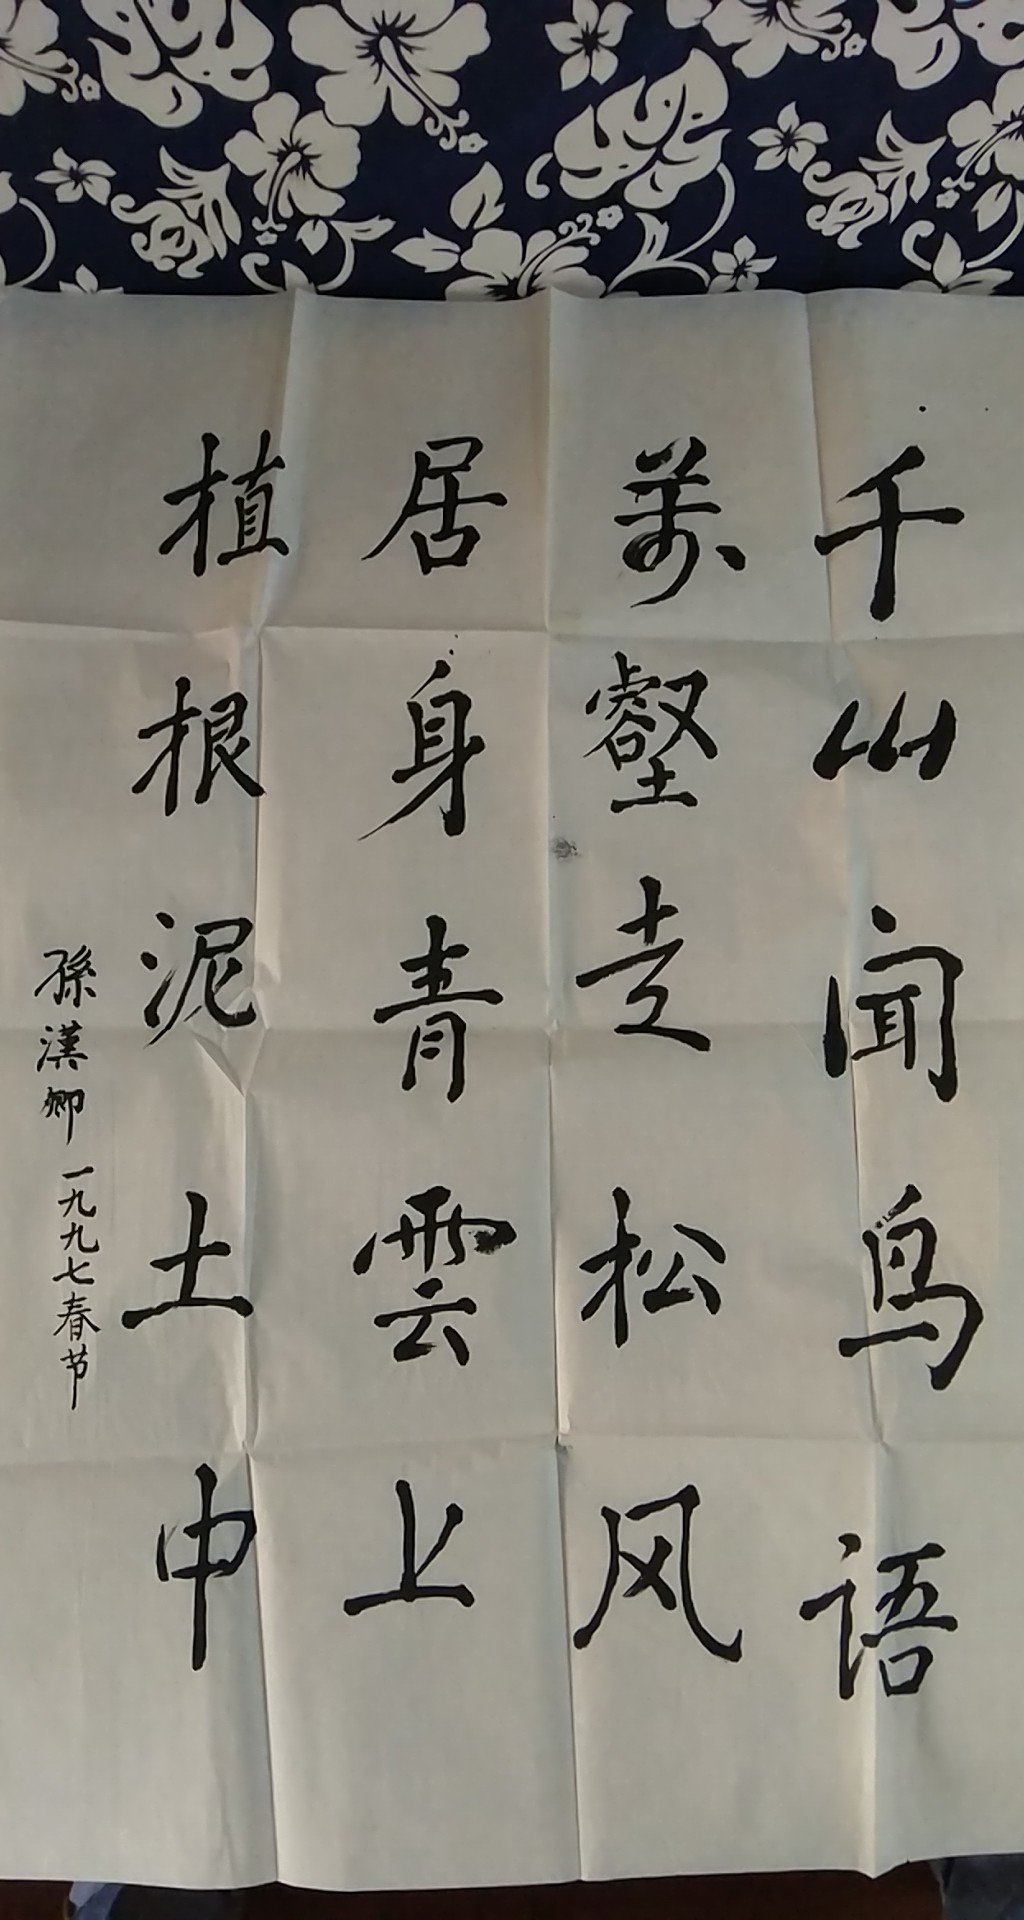 千山闻鸟语
萬壑走松风
居身青雲上
植根泥土中
孫漢卿 一九九七春节